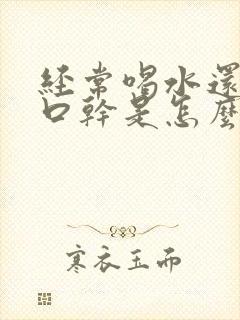 經常喝水還
口幹是怎麼
寒衣玉而